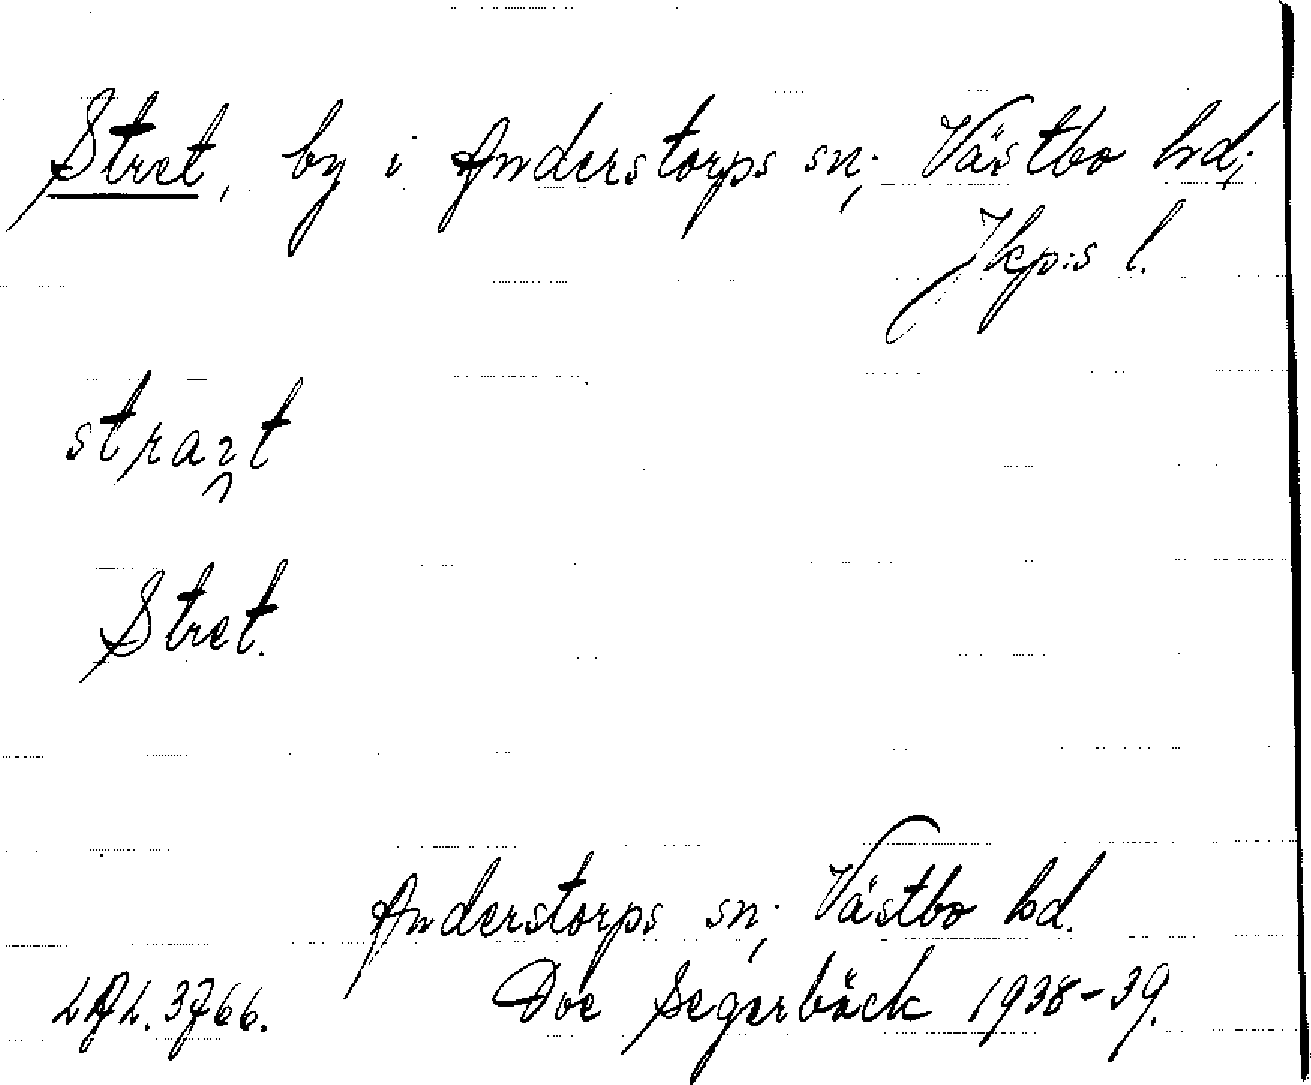 Stret, by i Anderstorps sn; Västbo hd;
Jkp:s l.
Stret.
Anderstorps sn; Västbo hd.
LAL. 3766. Doe Segerbäck 1938-39.